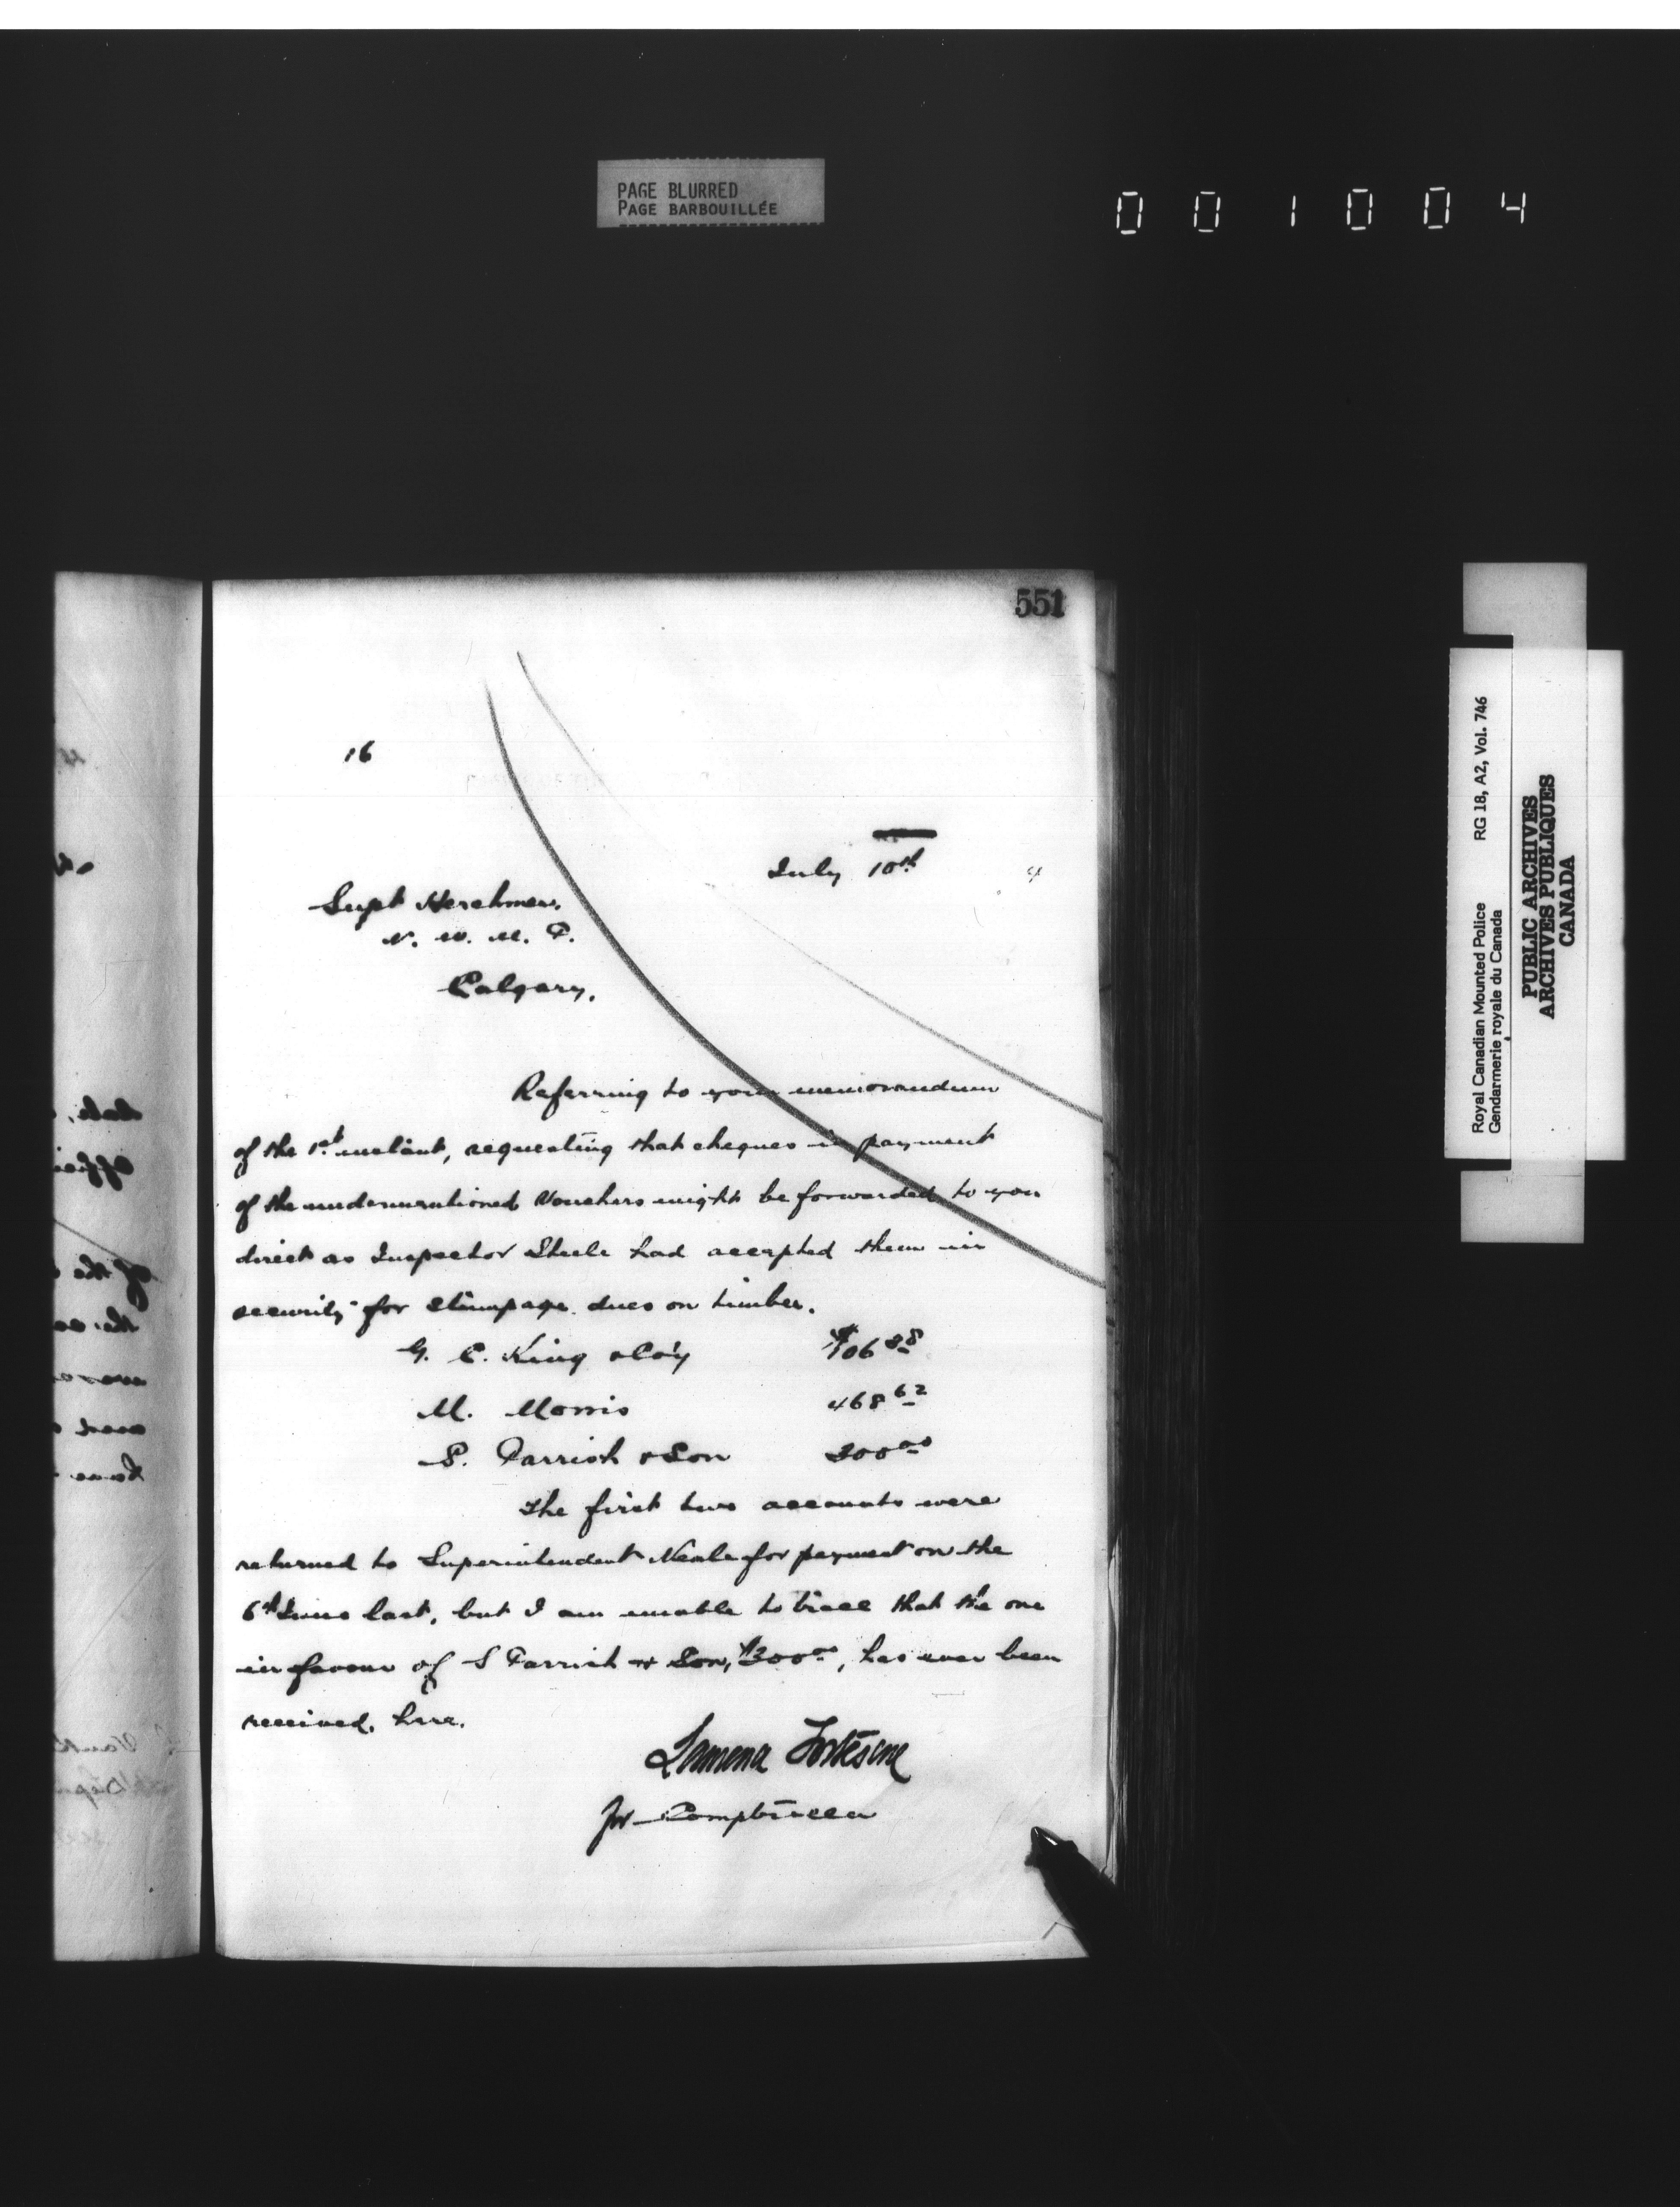 PAGE BLURRED
PAGE BARBOUILLÉE
001004
551
16
July 10th
4
Supt Herchmer.
N. W. M. P.
Calgary.
Referring to your memorandum
of the 1st instant, requesting that cheques in payment
of the undermentioned Vouchers might be forwarded to you
direct as Inspector Steele had accepted them in
security for stumpage dues on timber.
G. C. King & Co'y $106 88
M. Morris 468 62
S. Parrish & Son 300 00
The first two accounts were
returned to Superintendent Neale for payment on the
6th June last, but I am unable to trace that the one
in favour of S Parrish & Son, $300 00, has ever been
received here.
Fortescue
for Comptroller
Royal Canadian Mounted Police RG 18, A2, Vol. 746
Gendarmerie royale du Canada
PUBLIC ARCHIVES
ARCHIVES PUBLIQUES
CANADA